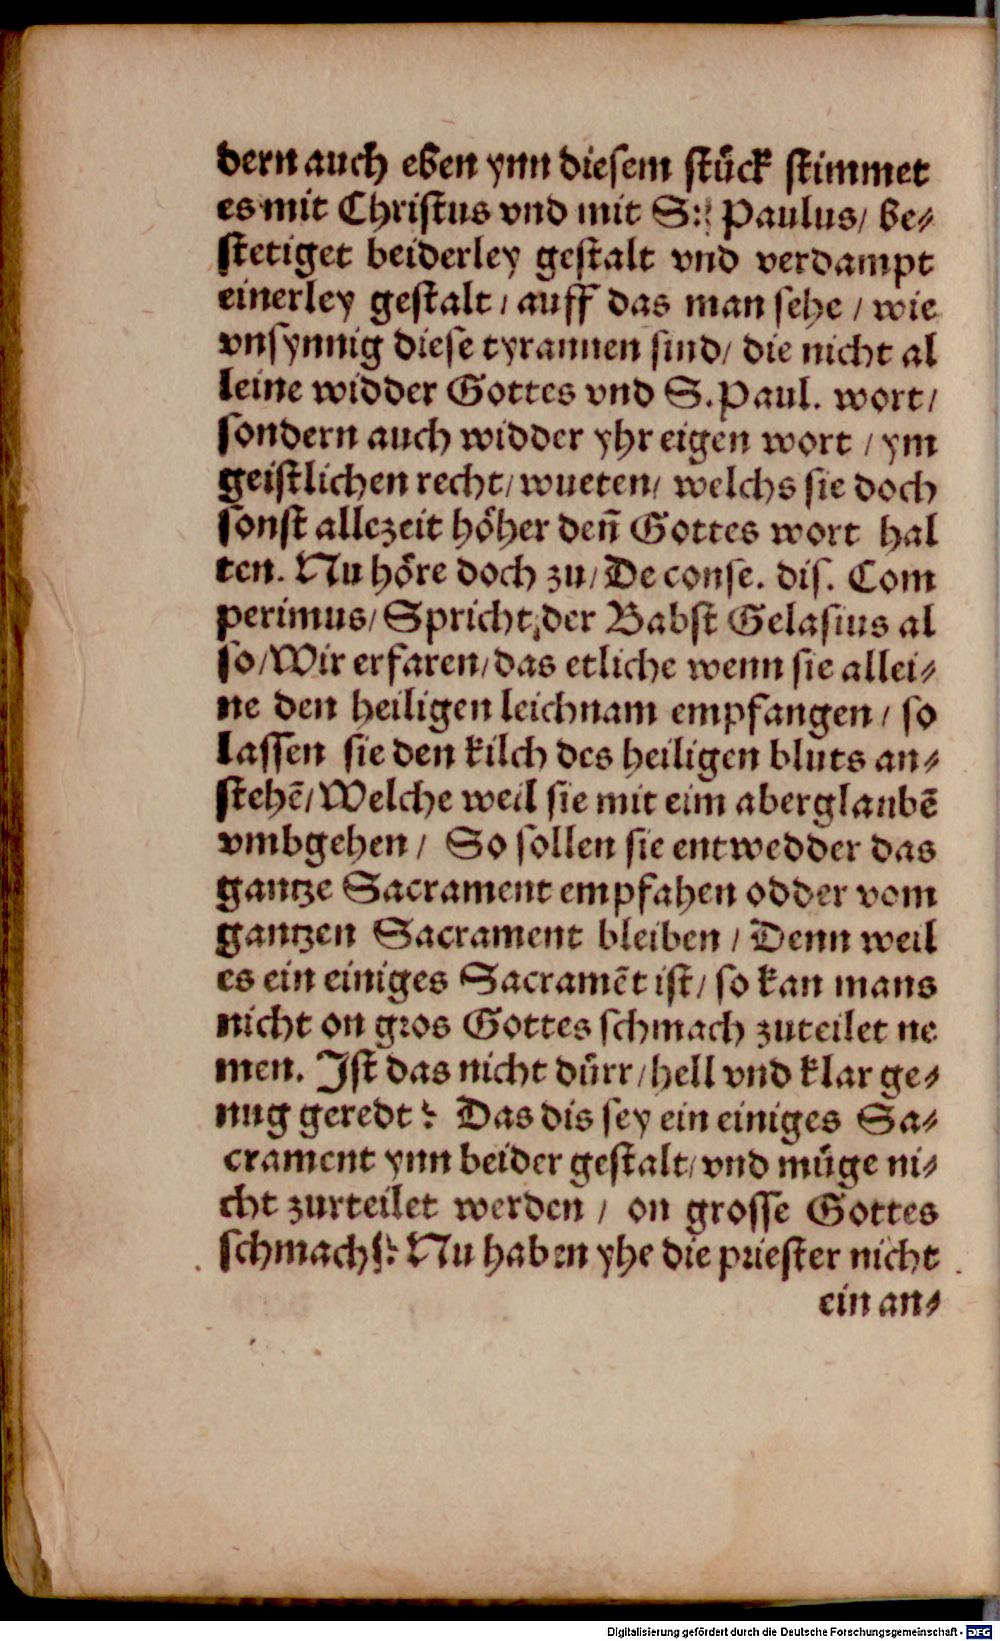 dern auch eben ynn diesem stuͤck stimmet
es mit Christus vnd mit S: Paulus/ be⸗
stetiget beiderley gestalt vnd verdampt
einerley gestalt / auff das man sehe / wie
vnsynnig diese tyrannen sind/ die nicht al
leine widder Gottes vnd S. Paul. wort/
sondern auch widder yhr eigen wort / ym
geistlichen recht/ wueten/ welchs sie doch
sonst allezeit hoͤher deñ Gottes wort hal
ten. Nu hoͤre doch zu/ De conse. dis. Com
perimus/ Spricht der Babst Gelasius al
so/ Wir erfaren/ das etliche wenn sie allei⸗
ne den heiligen leichnam empfangen / so
lassen sie den kilch des heiligen bluts an⸗
stehẽ/ Welche weil sie mit eim aberglaubẽ
vmbgehen / So sollen sie entwedder das
gantze Sacrament empfahen odder vom
gantzen Sacrament bleiben / Denn weil
es ein einiges Sacramẽt ist/ so kan mans
nicht on gros Gottes schmach zuteilet ne
men. Ist das nicht duͤrr/ hell vnd klar ge⸗
nug geredt? Das dis sey ein einiges Sa⸗
crament ynn beider gestalt/ vnd muͤge ni⸗
cht zurteilet werden / on grosse Gottes
schmach? Nu haben yhe die priester nicht
ein an⸗
Digitalisierung gefördert durch die Deutsche Forschungsgemeinschaft - DFG